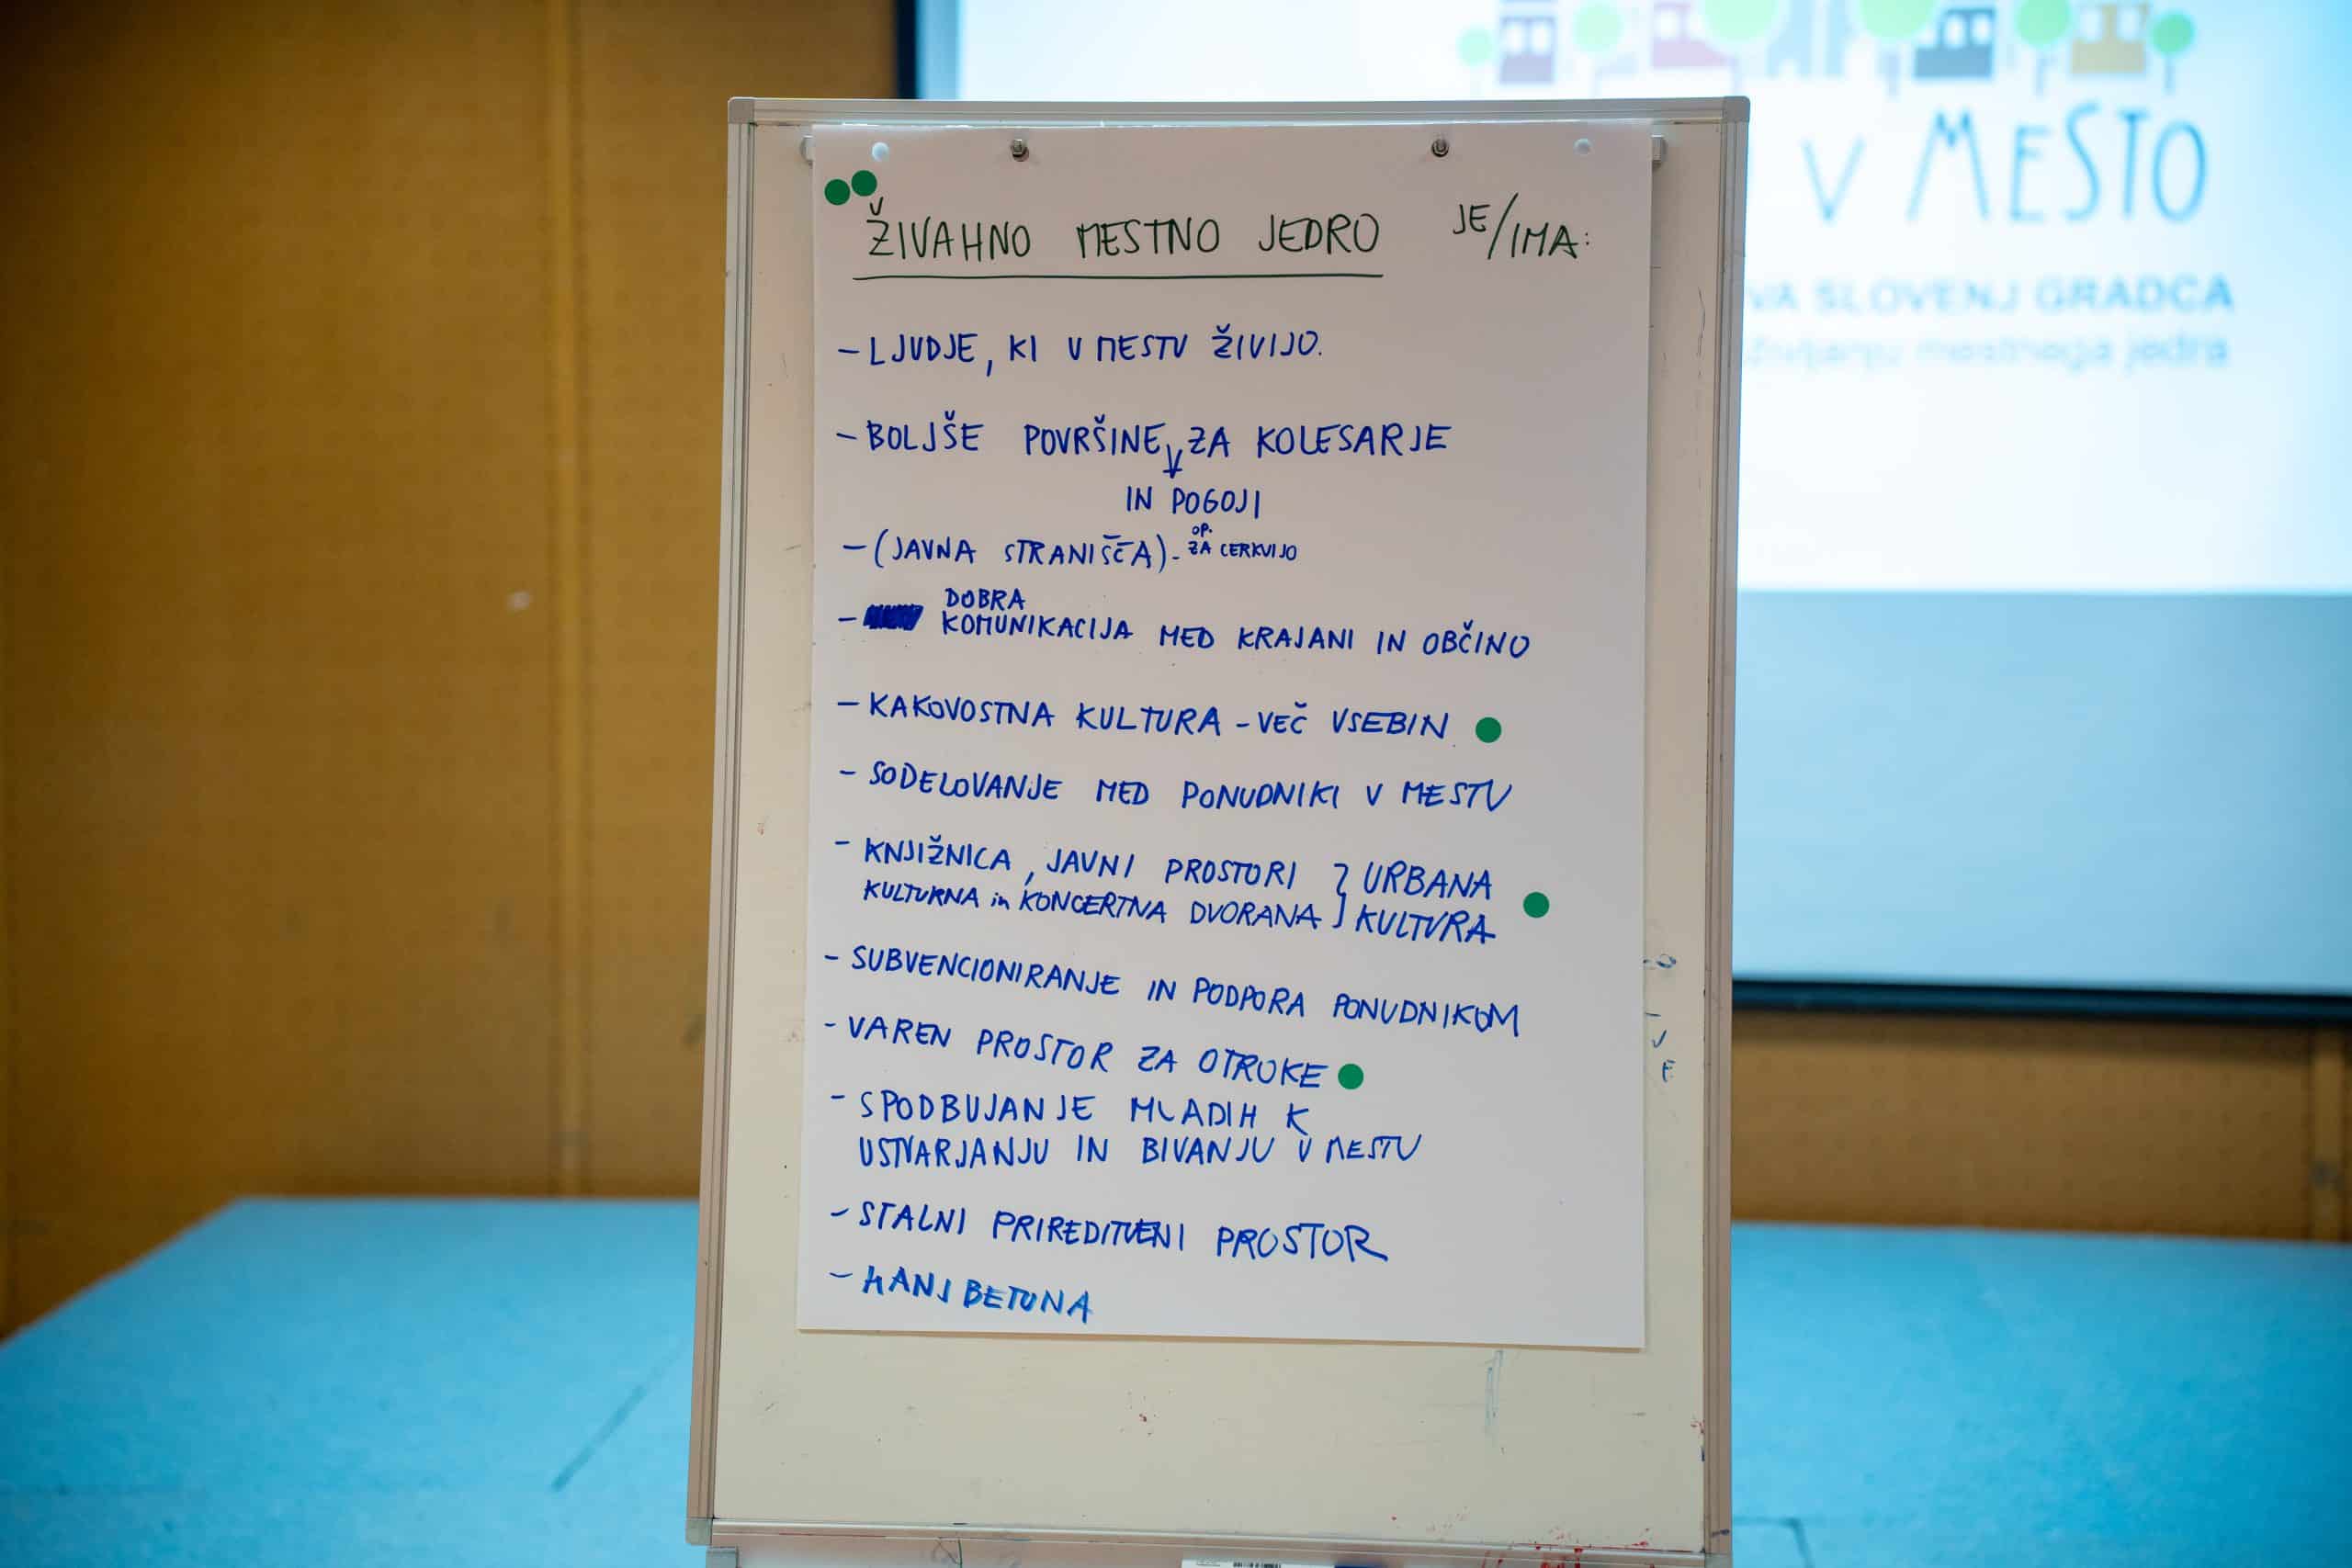 ŽIVAHNO MESTNO JEDRO JE/IMA:
- LJUDJE, KI V MESTU ŽIVIJO.
- BOLJŠE POVRŠINE ZA KOLESARJE
IN POGOJI
- (JAVNA STRANIŠČA) - OP. ZA CERKVIJO
DOBRA
- KOMUNIKACIJA MED KRAJANI IN OBČINO
- KAKOVOSTNA KULTURA - VEČ VSEBIN
- SODELOVANJE MED PONUDNIKI V MESTU
- KNJIŽNICA, JAVNI PROSTORI } URBANA
KULTURNA in KONCERTNA DVORANA } KULTURA
- SUBVENCIONIRANJE IN PODPORA PONUDNIKOM
- VAREN PROSTOR ZA OTROKE
- SPODBUJANJE MLADIH K
USTVARJANJU IN BIVANJU V MESTU
- STALNI PRIREDITVENI PROSTOR
- MANJ BETONA
V MESTO
VA SLOVENJ GRADCA
življanju mestnega jedra